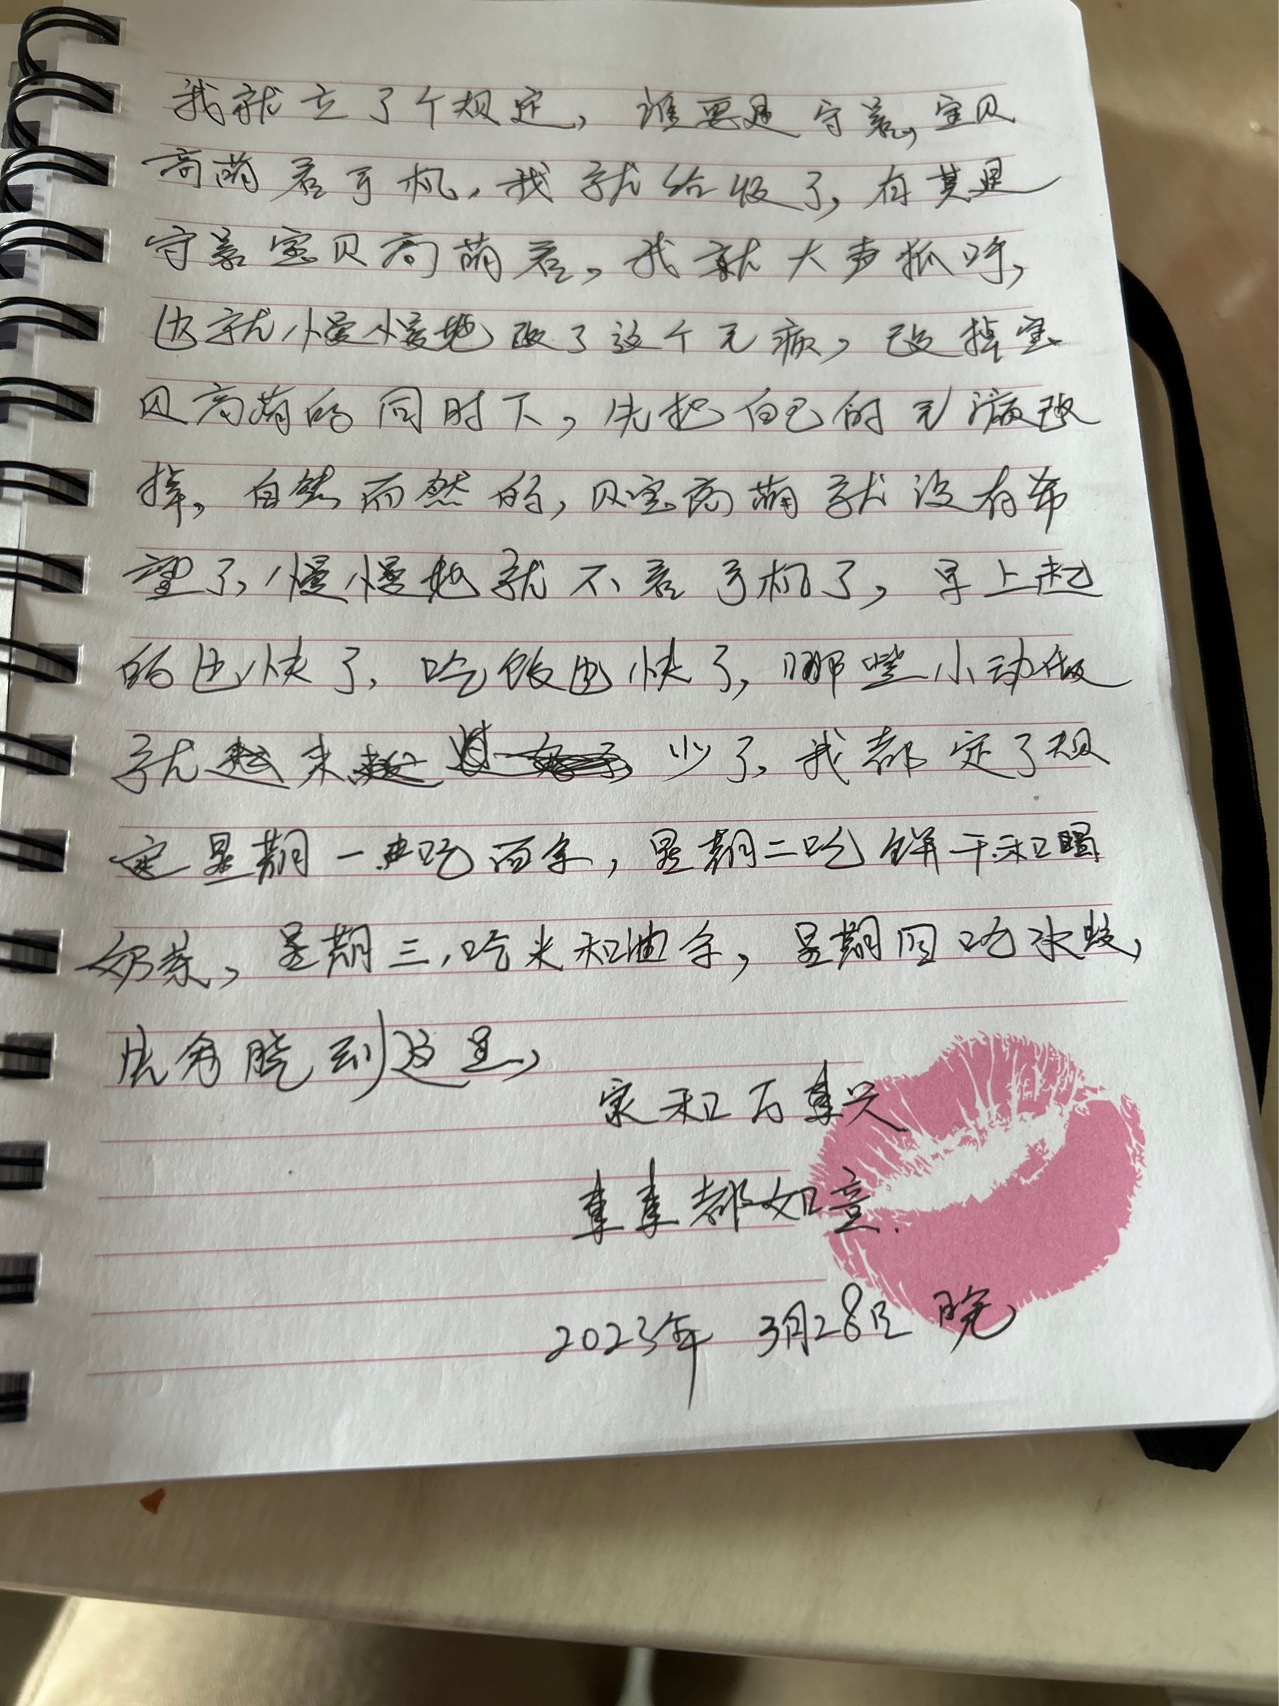 我就立了个规定，谁要是守着，宝贝
高萌看手机，我就给收了，有其是
守着宝贝高萌看，我就大声狐呼，
也就慢慢地改了这个毛病，改掉宝
贝高萌的同时下，先把自己的毛病改
掉，自然而然的，贝宝高萌就没有希
望了，慢慢地就不看手机了，早上起
的也快了，吃饭也快了，哪些小动做
就越来越少了，我都定了规
定星期一吃面条，星期二吃饼干和喝
奶茶，星期三，吃米和油条，星期四吃水饺，
先今晚到这里，
家和万事兴
事事都如意.
2023年 3月28日 晚